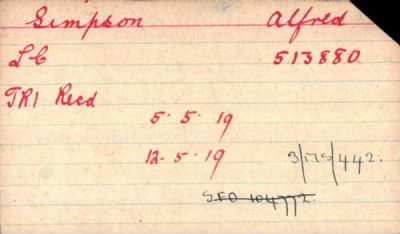 Simpson Alfred
LC 513880
TR1 Recd
5. 5. 19
12. 5. 19 3/MS/442.
SFO 104772.